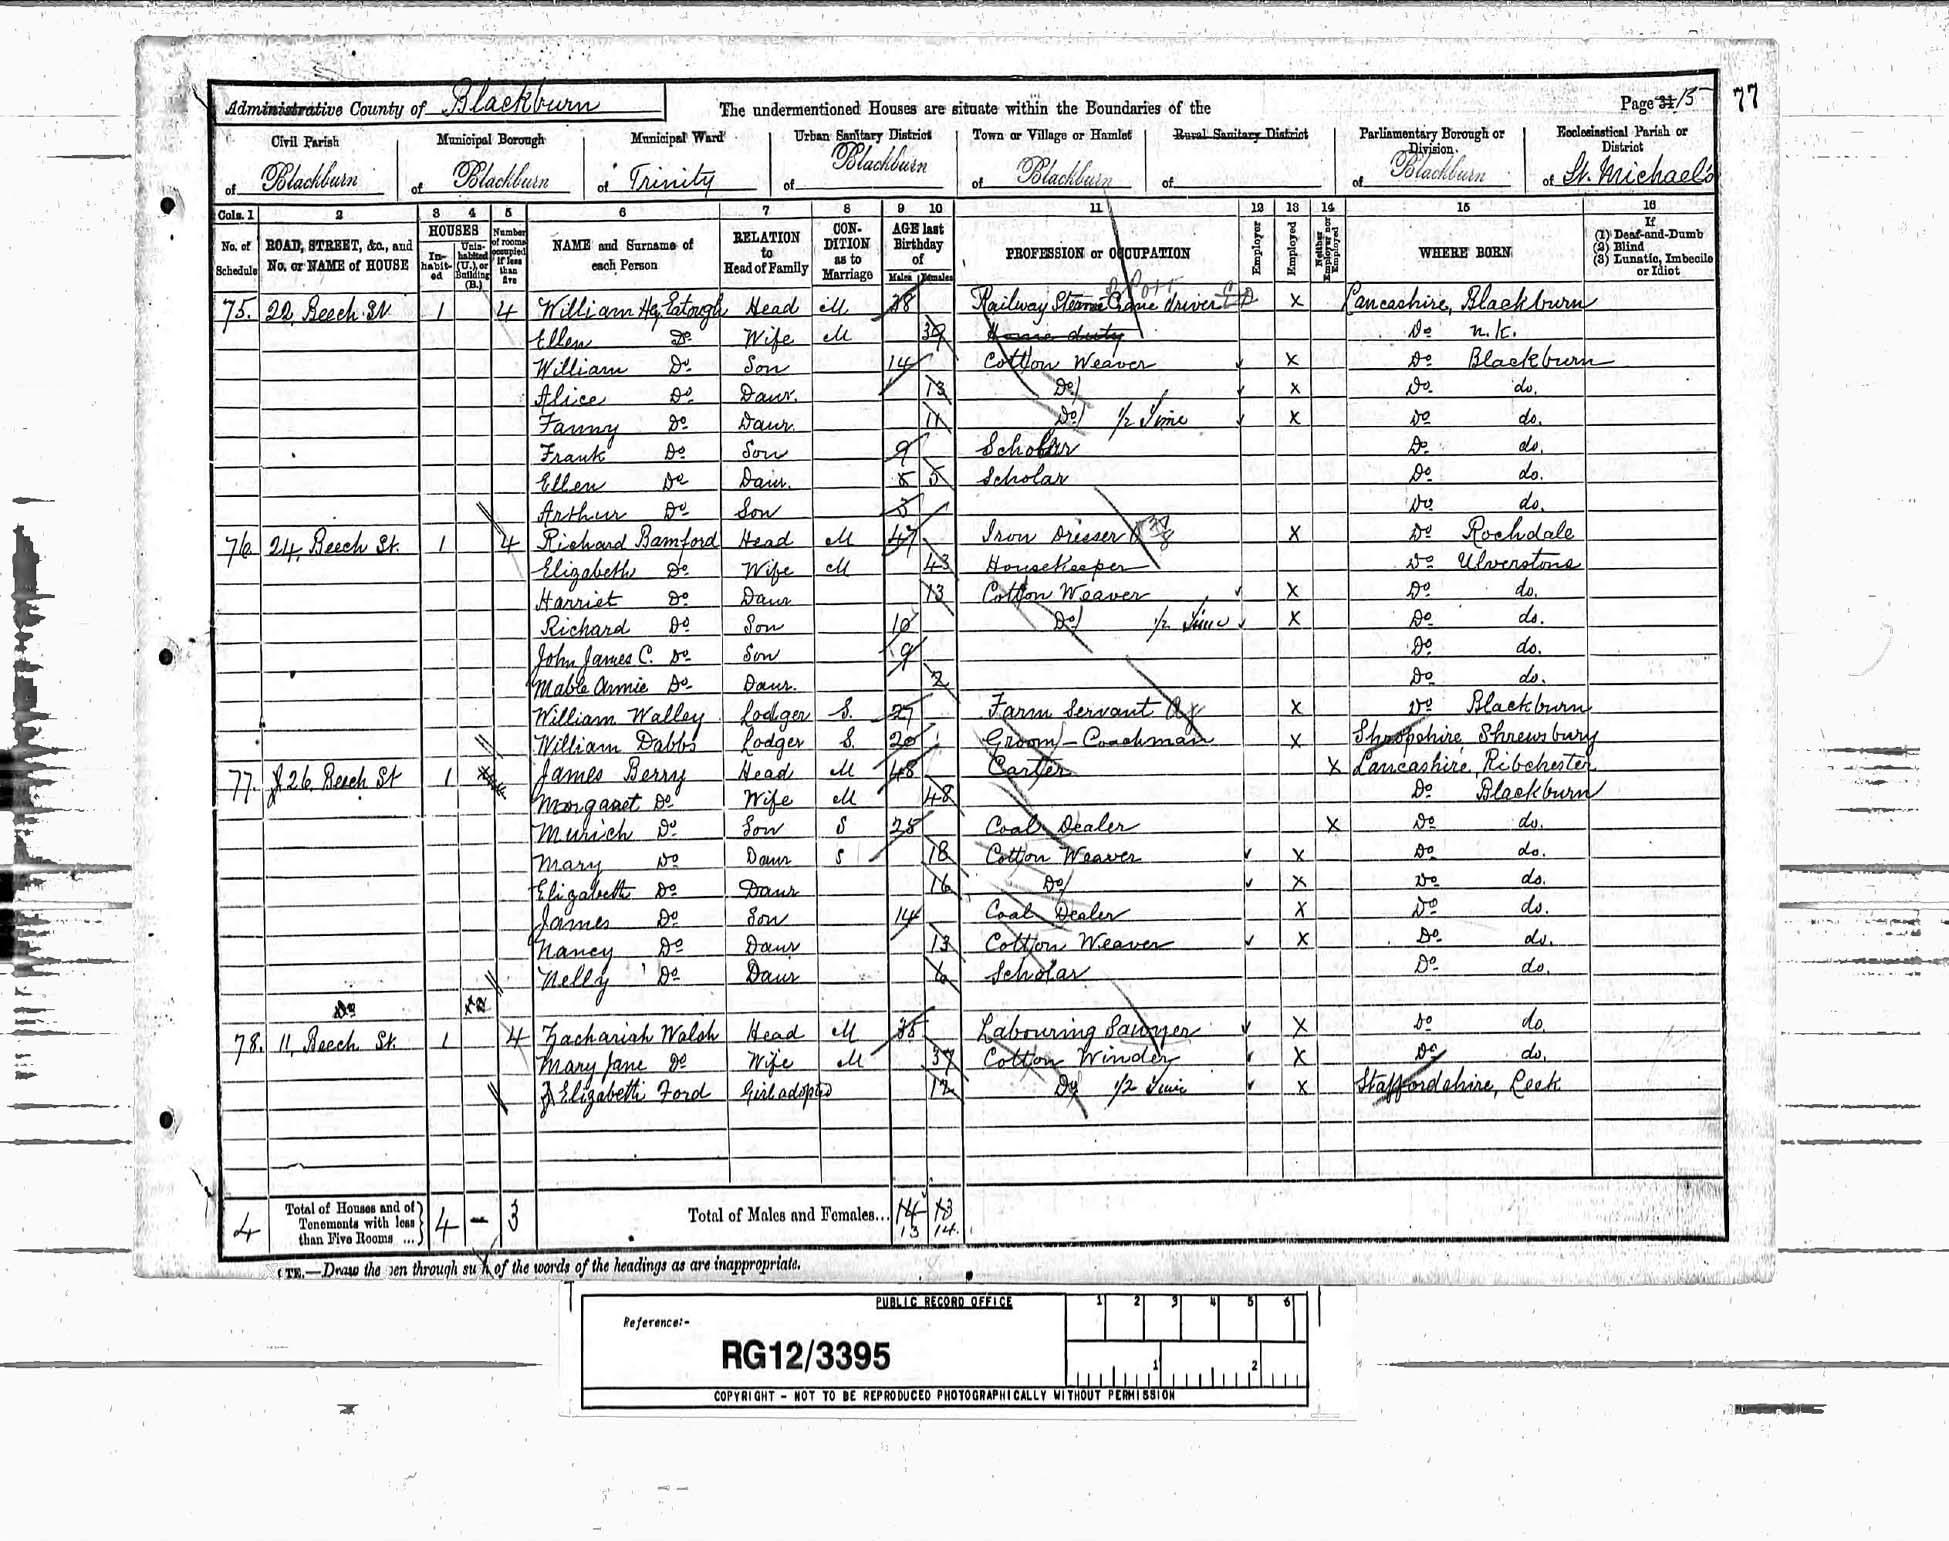 Administrative County of Blackburn
The undermentioned Houses are situate within the Boundaries of the
Page 31 15
77
Civil Parish of Blackburn
Municipal Borough of Blackburn
Municipal Ward of Trinity
Urban Sanitary District of Blackburn
Town or Village or Hamlet of Blackburn
Rural Sanitary District of
Parliamentary Borough or Division of Blackburn
Ecclesiastical Parish or District of St. Michael's
Cols. 1 2 3 4 5 6 7 8 9 10 11 12 13 14 15 16
No. of Schedule
ROAD, STREET, &c., and No. or NAME of HOUSE
HOUSES
In-habit-ed
Unin-habited (U.), or Building (B.)
Number of rooms occupied if less than five
NAME and Surname of each Person
RELATION to Head of Family
CON-DITION as to Marriage
AGE last Birthday of
Males Females
PROFESSION or OCCUPATION
Employer
Employed
Neither Employer nor Employed
WHERE BORN
If (1) Deaf-and-Dumb (2) Blind (3) Lunatic, Imbecile or Idiot
75. 22, Beech St 1 4 William Hy Eatough Head M 38 Railway Steam Crane driver X Lancashire, Blackburn
Ellen Do Wife M 39 Home duty Do n.k.
William Do Son 14 Cotton Weaver X Do Blackburn
Alice Do Daur. 13 Do X Do do.
Fanny Do Daur. 11 Do 1/2 Time X Do do.
Frank Do Son 9 Scholar Do do.
Ellen Do Daur. 5 Scholar Do do.
Arthur Do Son 3 Do do.
76. 24, Beech St. 1 4 Richard Bamford Head M 47 Iron Dresser X Do Rochdale
Elizabeth Do Wife M 43 Housekeeper Do Ulverstone
Harriet Do Daur 13 Cotton Weaver X Do do.
Richard Do Son 10 Do 1/2 Time X Do do.
John James C. Do Son 9 Do do.
Mable Annie Do Daur. 2 Do do.
William Walley Lodger S. 27 Farm Servant Ag X Do Blackburn
William Dabbs Lodger S. 20 Groom - Coachman X Shropshire, Shrewsbury
77. 26, Beech St 1 James Berry Head M 48 Carter X Lancashire, Ribchester
Margaret Do Wife M 48 Do Blackburn
Murich Do Son S 25 Coal Dealer X Do do.
Mary Do Daur S 18 Cotton Weaver X Do do.
Elizabeth Do Daur 16 Do X Do do.
James Do Son 14 Coal Dealer X Do do.
Nancy Do Daur 13 Cotton Weaver X Do do.
Nelly Do Daur 6 Scholar Do do.
Do
78. 11, Beech St. 1 4 Zachariah Walsh Head M 38 Labouring Sawyer X Do do.
Mary Jane Do Wife M 37 Cotton Winder X Do do.
Elizabeth Ford Girl adopted 12 Do 1/2 Time X Staffordshire, Leek
4 Total of Houses and of Tenements with less than Five Rooms ... 4 - 3 Total of Males and Females... 14 13
13 14.
TE.—Draw the pen through such of the words of the headings as are inappropriate.
PUBLIC RECORD OFFICE
1 2 3 4 5 6
Reference:-
RG12/3395
1 2
COPYRIGHT - NOT TO BE REPRODUCED PHOTOGRAPHICALLY WITHOUT PERMISSION